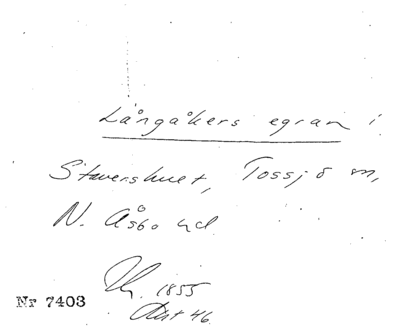 Långåkers egran i
Stavershult, Tossjö sn,
N. Åsbo hd
1855
46
Nr 7403